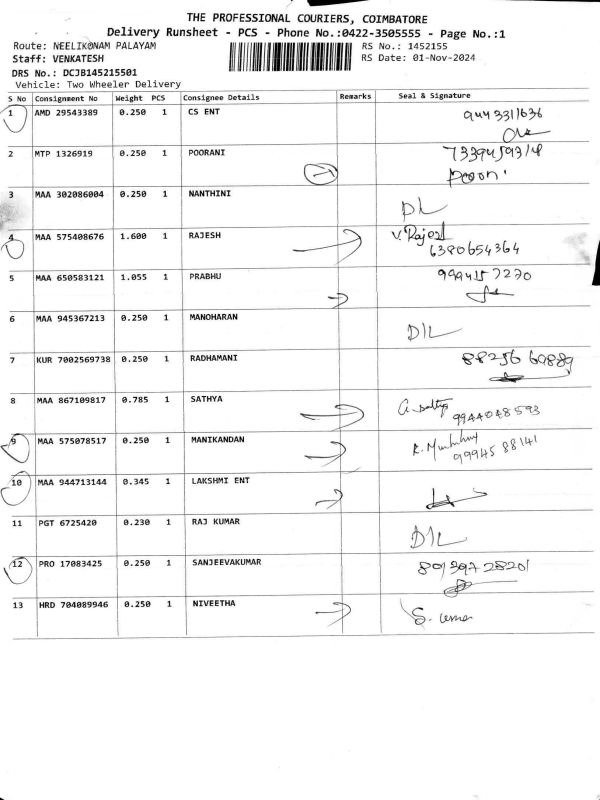 THE PROFESSIONAL COURIERS, COIMBATORE
Delivery Runsheet - PCS - Phone No.:0422-3505555 - Page No.:1
Route: NEELIKONAM PALAYAM RS No.: 1452155
Staff: VENKATESH RS Date: 01-Nov-2024
DRS No.: DCJB145215501
Vehicle: Two Wheeler Delivery
S No Consignment No Weight PCS Consignee Details Remarks Seal & Signature
1 AMD 29543389 0.250 1 CS ENT
2 MTP 1326919 0.250 1 POORANI
Poon
3 MAA 302086004 0.250 1 NANTHINI
DL
4 MAA 575408676 1.600 1 RAJESH V. Rajesh
6380654364
5 MAA 650583121 1.055 1 PRABHU
6 MAA 945367213 0.250 1 MANOHARAN
D/L
7 KUR 7002569738 0.250 1 RADHAMANI 88256 60889
8 MAA 867109817 0.785 1 SATHYA
9944048593
9 MAA 575078517 0.250 1 MANIKANDAN
99945 88141
10 MAA 944713144 0.345 1 LAKSHMI ENT
11 PGT 6725420 0.230 1 RAJ KUMAR
D/L
12 PRO 17083425 0.250 1 SANJEEVAKUMAR
13 HRD 704089946 0.250 1 NIVEETHA